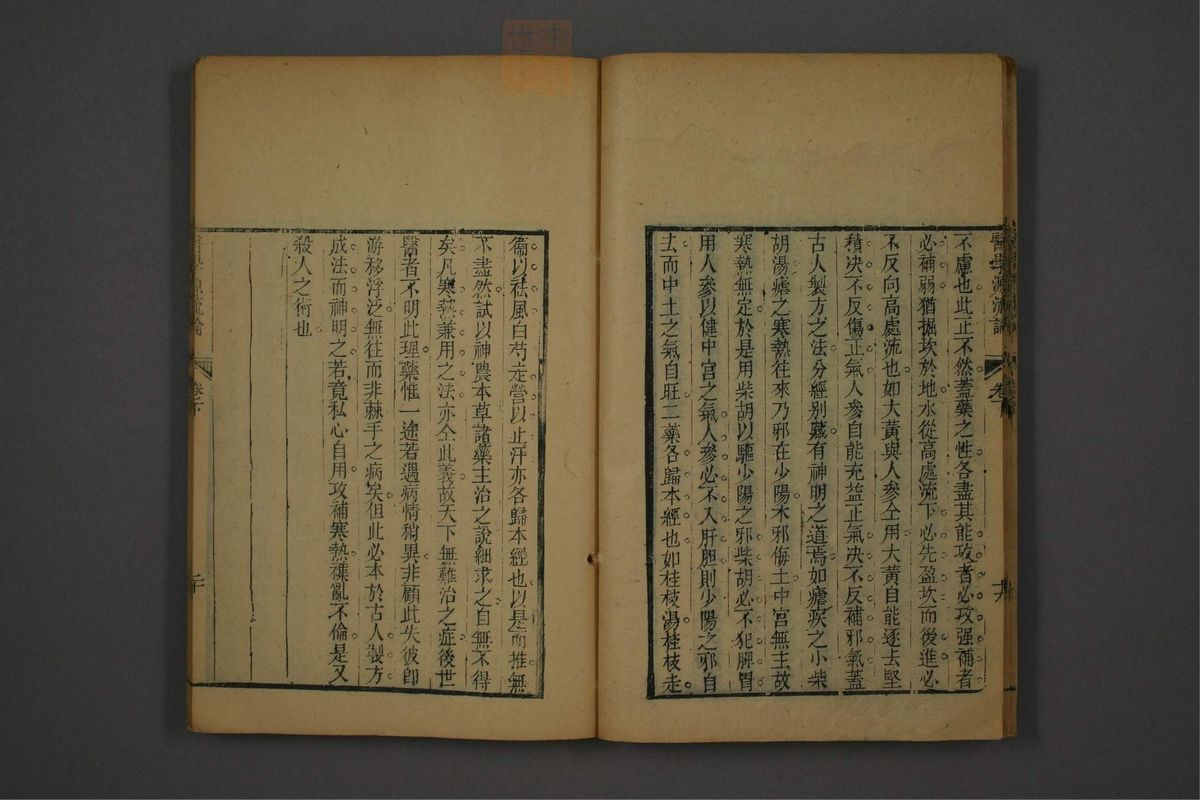 醫學源流論
卷下
不慮也此正不然蓋藥之性各盡其能攻者必攻强補者
必補弱猶掘坎於地水從高處流下必先盈坎而後進必
不反向高處流也如大黃與人參仝用大黃自能逐去堅
積决不反傷正氣人參自能充益正氣决不反補邪氣蓋
古人製方之法分經別藏有神明之道焉如瘧疾之小柴
胡湯瘧之寒熱往來乃邪在少陽木邪侮土中宮無主故
寒熱無定於是用柴胡以驅少陽之邪柴胡必不犯脾胃
用人參以健中宮之氣人參必不入肝胆則少陽之邪自
去而中土之氣自旺二藥各歸本經也如桂枝湯桂枝走
衞以祛風白芍走營以止汗亦各歸本經也以是而推無
不盡然試以神農本草諸藥主治之說細求之自無不得
矣凡寒熱兼用之法亦仝此義故天下無難治之症後世
醫者不明此理藥惟一途若遇病情稍異非顧此失彼卽
游移浮泛無往而非棘手之病矣但此必本於古人製方
成法而神明之若竟私心自用攻補寒熱襍亂不倫是又
殺人之術也
醫學源流論
卷下